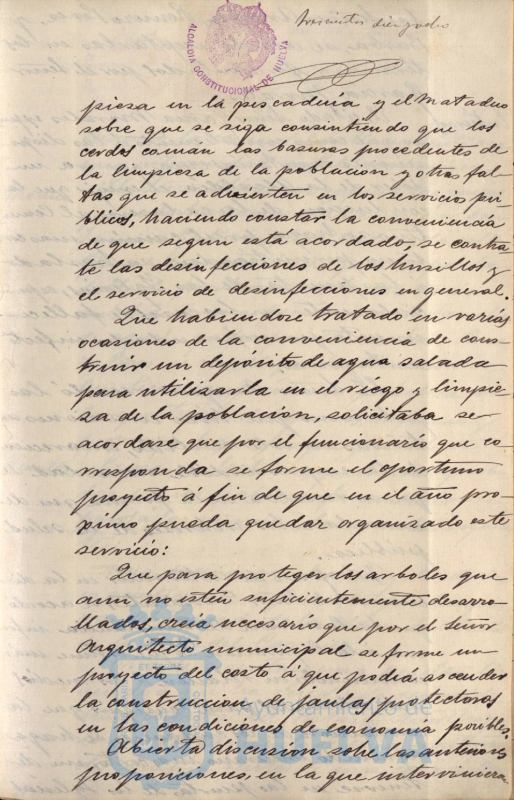 trescientos diez y ocho
ALCALDIA CONSTITUCIONAL DE HUELVA
pieza en la pescadería y el Matadero
sobre que se siga consintiendo que los
cerdos coman las basuras procedentes de
la limpieza de la poblacion y otras fal-
tas que se advierten en los servicios pú-
blicos, haciendo constar la conveniencia
de que segun está acordado, se contra-
te las desinfecciones de los husillos y
el servicio de desinfecciones en general.
Que habiendose tratado en varias
ocasiones de la conveniencia de cons-
truir un depósito de agua salada
para utilizarla en el riego y limpie-
za de la poblacion, solicitaba se
acordase que por el funcionario que co-
rresponda se forme el oportuno
proyecto á fin de que en el año pro-
ximo pueda quedar organizado este
servicio:
Que para proteger los arboles que
aun no estén suficientemente desarro-
llados, creía necesario que por el Señor
Arquitecto municipal se forme un
proyecto del costo á que podrá ascender
la construccion de jaulas protectoras
en las condiciones de economía posibles.
Abierta discusion sobre las anteriores
proposiciones, en la que intervinieron
Ayuntamiento de
HUELVA